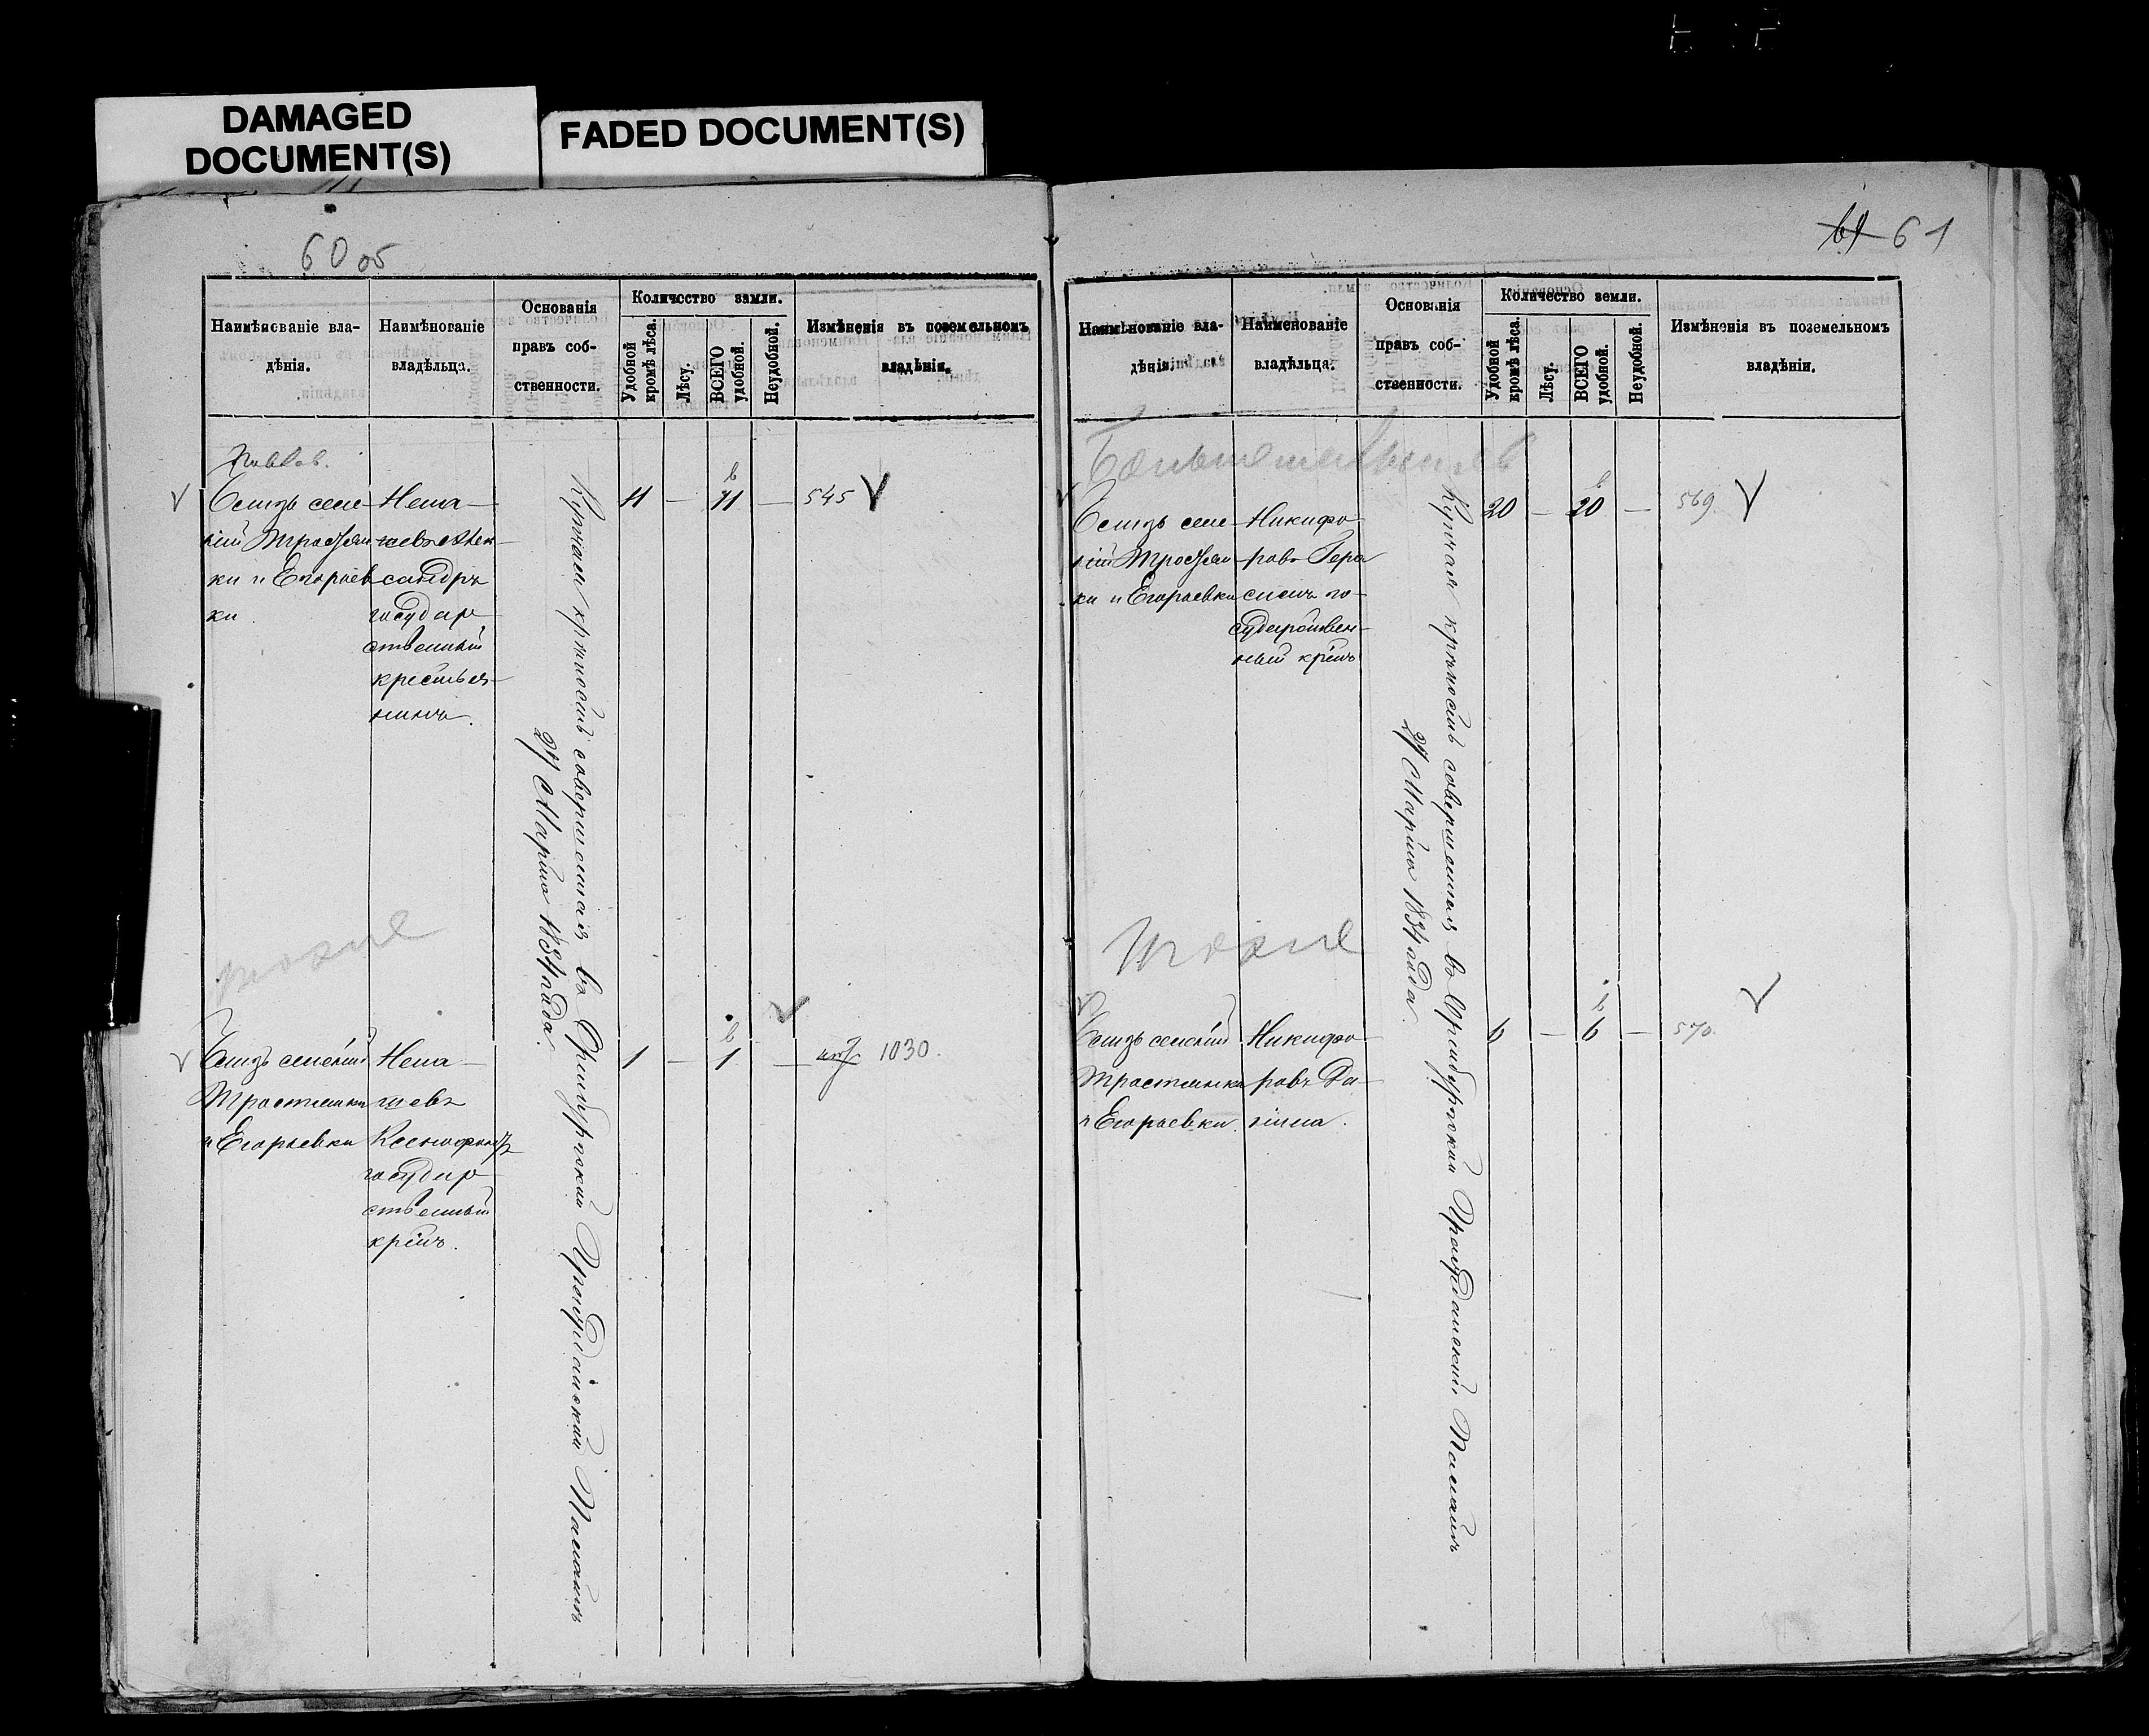 DAMAGED
DOCUMENT(S)
FADED DOCUMENT(S)
60 об
Наимѣнованіе вла-
дѣнія.
Наимѣнованіе
владѣльца.
Основанія
правъ соб-
ственности.
Количество земли.
Удобной
кромѣ лѣса.
Лѣсу.
ВСЕГО
удобной.
Неудобной.
Измѣненія въ поземельномъ
владѣніи.
Близь селе-
ній Тростян-
ки и Егорьев
ки.
Нена-
шевъ Алек-
сандръ
государ-
ственный
крестья-
нинъ.
Купчая крѣпость совершенная въ Оренбургской Гражданской Палатѣ
27 Марта 1834 года.
11 — 11 — 545
тоже
Близь селеній
Тростянки
и Егорьевки
Нена-
шевъ
Ксенофонтъ
государ-
ственный
кр-инъ.
1 — 1 — 1030.
61 61
Наименованіе вла-
дѣнія.
Наименованіе
владѣльца.
Основанія
правъ соб-
ственности.
Количество земли.
Удобной
кромѣ лѣса.
Лѣсу.
ВСЕГО
удобной.
Неудобной.
Измѣненія въ поземельномъ
владѣніи.
Близь селе-
ній Тростян-
ки и Егорьевки
Никифо-
ровъ Гера-
симъ го-
сударствен-
ный кр-инъ
Купчая крѣпость совершенная въ Оренбургской Гражданской Палатѣ
27 Марта 1834 года.
20 — 20 — 569.
тоже
Близь селеній
Тростянки
и Егорьевки.
Никифо-
ровъ
6 — 6 — 570.